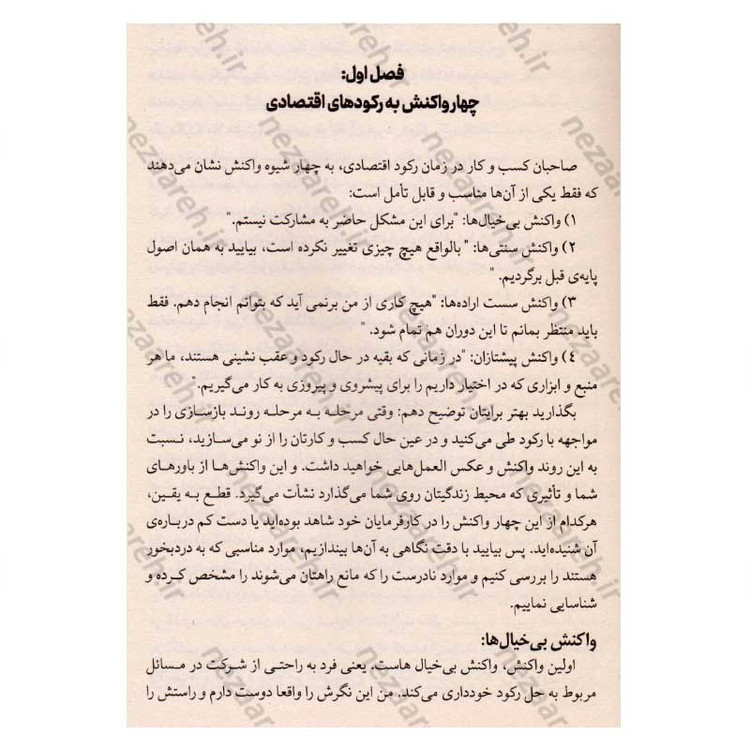 فصل اول:
چهار واکنش به رکودهای اقتصادی
صاحبان کسب و کار در زمان رکود اقتصادی، به چهار شیوه واکنش نشان می‌دهند
که فقط یکی از آن‌ها مناسب و قابل تأمل است:
۱) واکنش بی‌خیال‌ها: "برای این مشکل حاضر به مشارکت نیستم."
۲) واکنش سنتی‌ها: "بالواقع هیچ چیزی تغییر نکرده است، بیایید به همان اصول
پایه‌ی قبل برگردیم. "
۳) واکنش سست اراده‌ها: "هیچ کاری از من برنمی آید که بتوانم انجام دهم. فقط
باید منتظر بمانم تا این دوران هم تمام شود. "
۴) واکنش پیشتازان: "در زمانی که بقیه در حال رکود و عقب نشینی هستند، ما هر
منبع و ابزاری که در اختیار داریم را برای پیشروی و پیروزی به کار می‌گیریم."
بگذارید بهتر برایتان توضیح دهم: وقتی مرحله به مرحله روند بازسازی را در
مواجهه با رکود طی می‌کنید و در عین حال کسب و کارتان را از نو می‌سازید، نسبت
به این روند واکنش و عکس العمل‌هایی خواهید داشت. و این واکنش‌ها از باورهای
شما و تأثیری که محیط زندگیتان روی شما می‌گذارد نشأت می‌گیرد. قطع به یقین،
هرکدام از این چهار واکنش را در کارفرمایان خود شاهد بوده‌اید یا دست کم درباره‌ی
آن شنیده‌اید. پس بیایید با دقت نگاهی به آن‌ها بیندازیم، موارد مناسبی که به دردبخور
هستند را بررسی کنیم و موارد نادرست را که مانع راهتان می‌شوند را مشخص کرده و
شناسایی نماییم.
واکنش بی‌خیال‌ها:
اولین واکنش، واکنش بی‌خیال هاست. یعنی فرد به راحتی از شرکت در مسائل
مربوط به حل رکود خودداری می‌کند. من این نگرش را واقعا دوست دارم و راستش را
nezaareh.ir